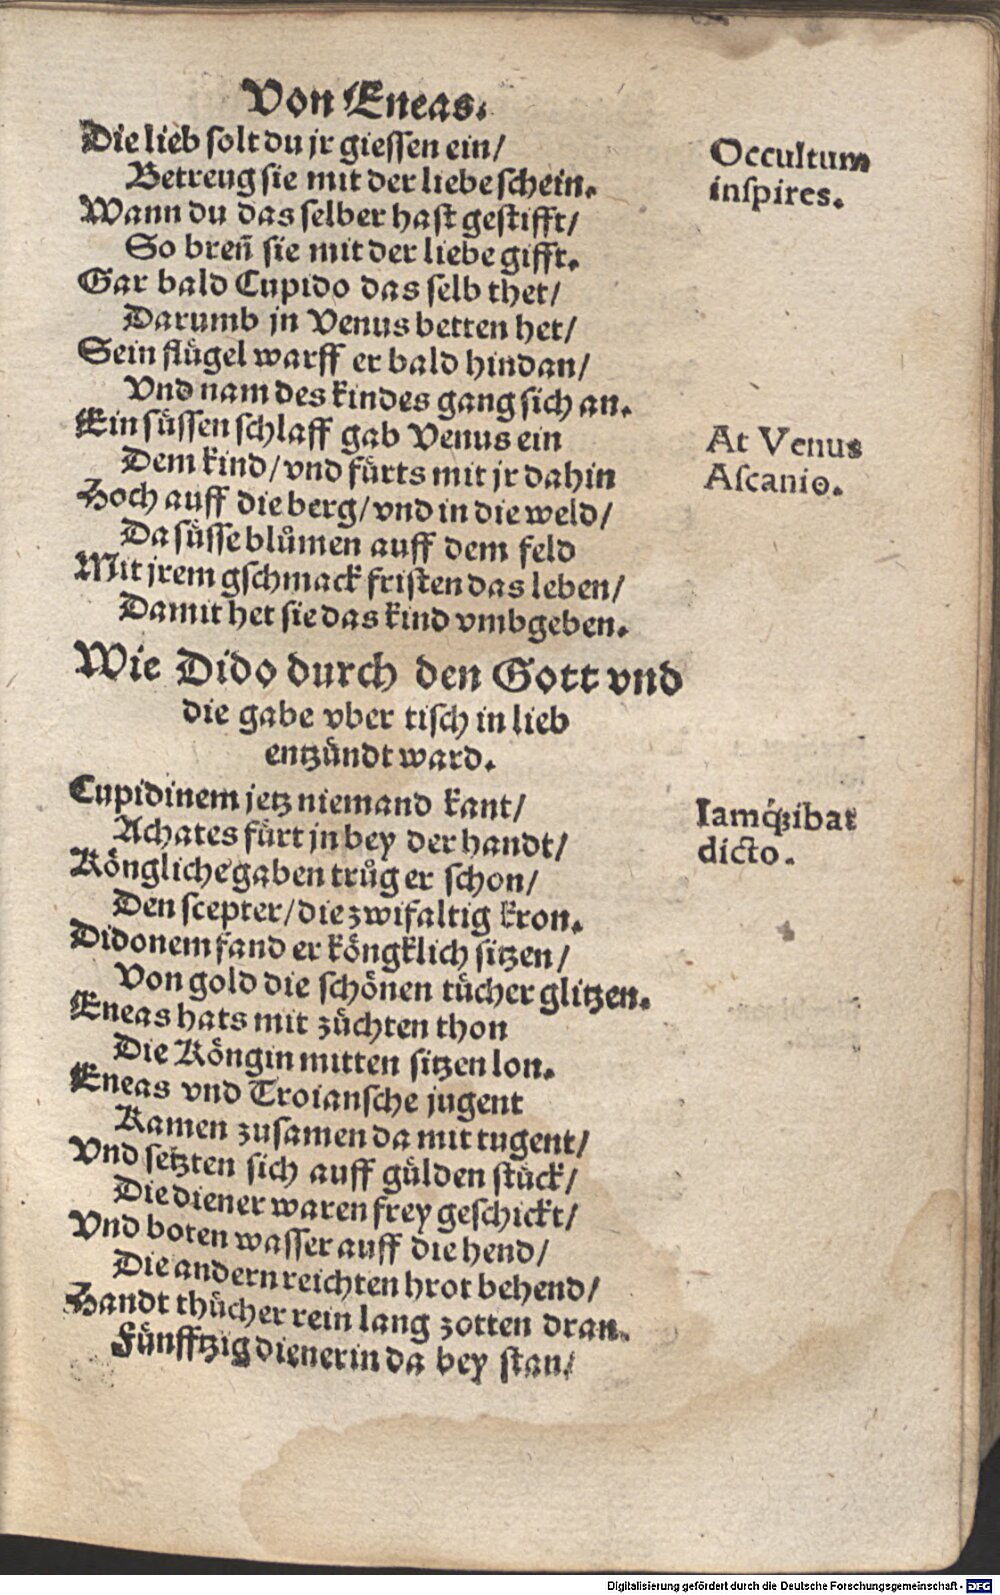 Von Eneas.
Die lieb solt du jr giessen ein/
Betreug sie mit der liebe schein.
Occultum
inspires.
Wann du das selber hast gestifft/
So breñ sie mit der liebe gifft.
Gar bald Cupido das selb thet/
Darumb jn Venus betten het/
Sein flügel warff er bald hindan/
Vnd nam des kindes gang sich an.
Ein süssen schlaff gab Venus ein
At Venus
Ascanio.
Dem kind/ vnd fürts mit jr dahin
Hoch auff die berg/ vnd in die weld/
Da süsse blůmen auff dem feld
Mit jrem gschmack fristen das leben/
Damit het sie das kind vmbgeben.
Wie Dido durch den Gott vnd
die gabe vber tisch in lieb
entzündt ward.
Cupidinem jetz niemand kant/
Iamq́; ibat
dicto.
Achates fürt jn bey der handt/
Köngliche gaben trůg er schon/
Den scepter/ die zwifaltig kron.
Didonem fand er köngklich sitzen/
Von gold die schönen tücher glitzen.
Eneas hats mit züchten thon
Die Köngin mitten sitzen lon.
Eneas vnd Troiansche jugent
Kamen zusamen da mit tugent/
Vnd setzten sich auff gülden stück/
Die diener waren frey geschickt/
Vnd boten wasser auff die hend/
Die andern reichten brot behend/
Handt thücher rein lang zotten dran.
Fünfftzig dienerin da bey stan/
Digitalisierung gefördert durch die Deutsche Forschungsgemeinschaft - DFG